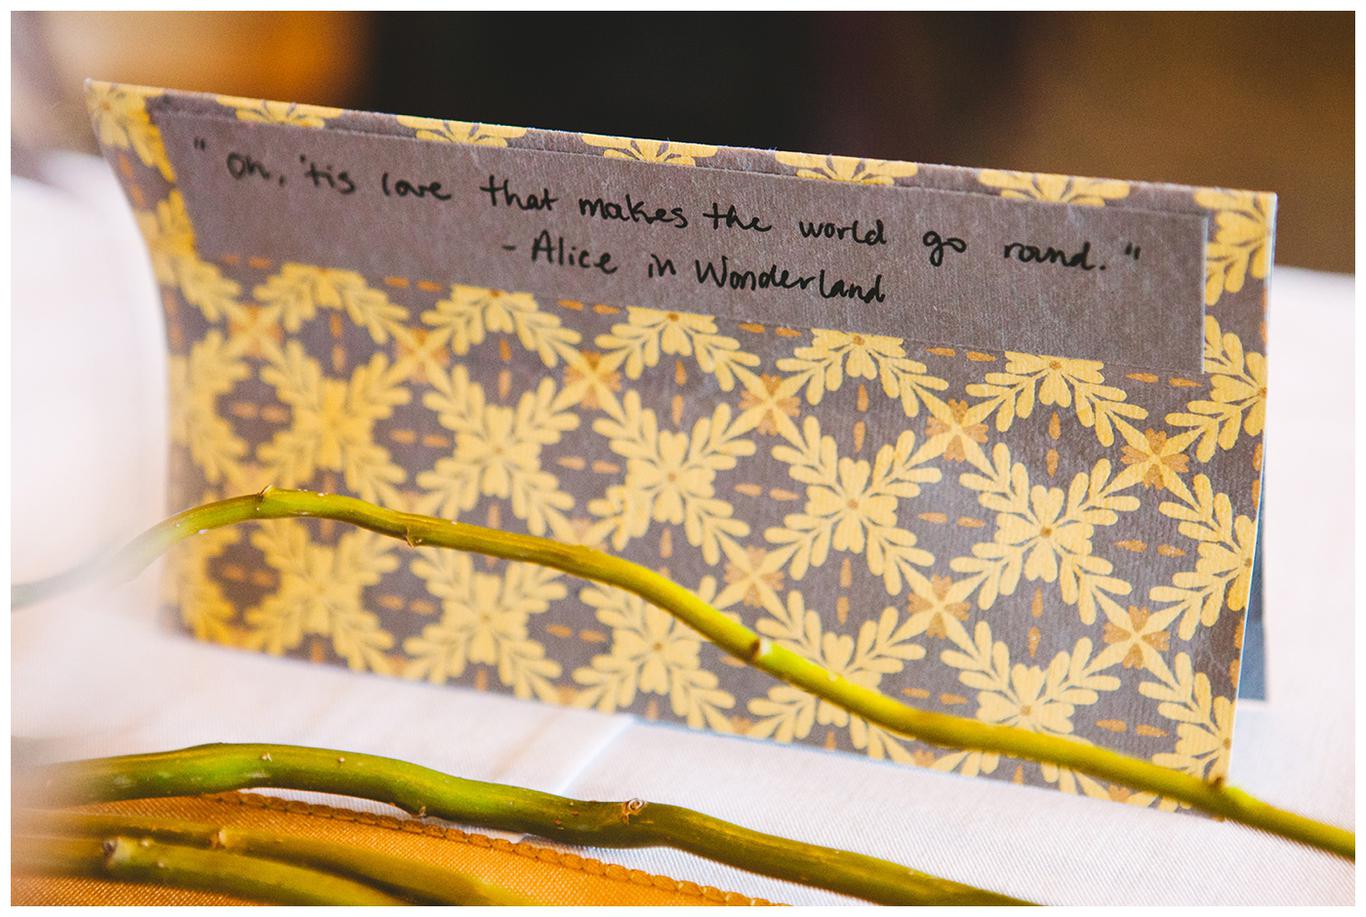 " Oh, 'tis love that makes the world go round. "
- Alice in Wonderland